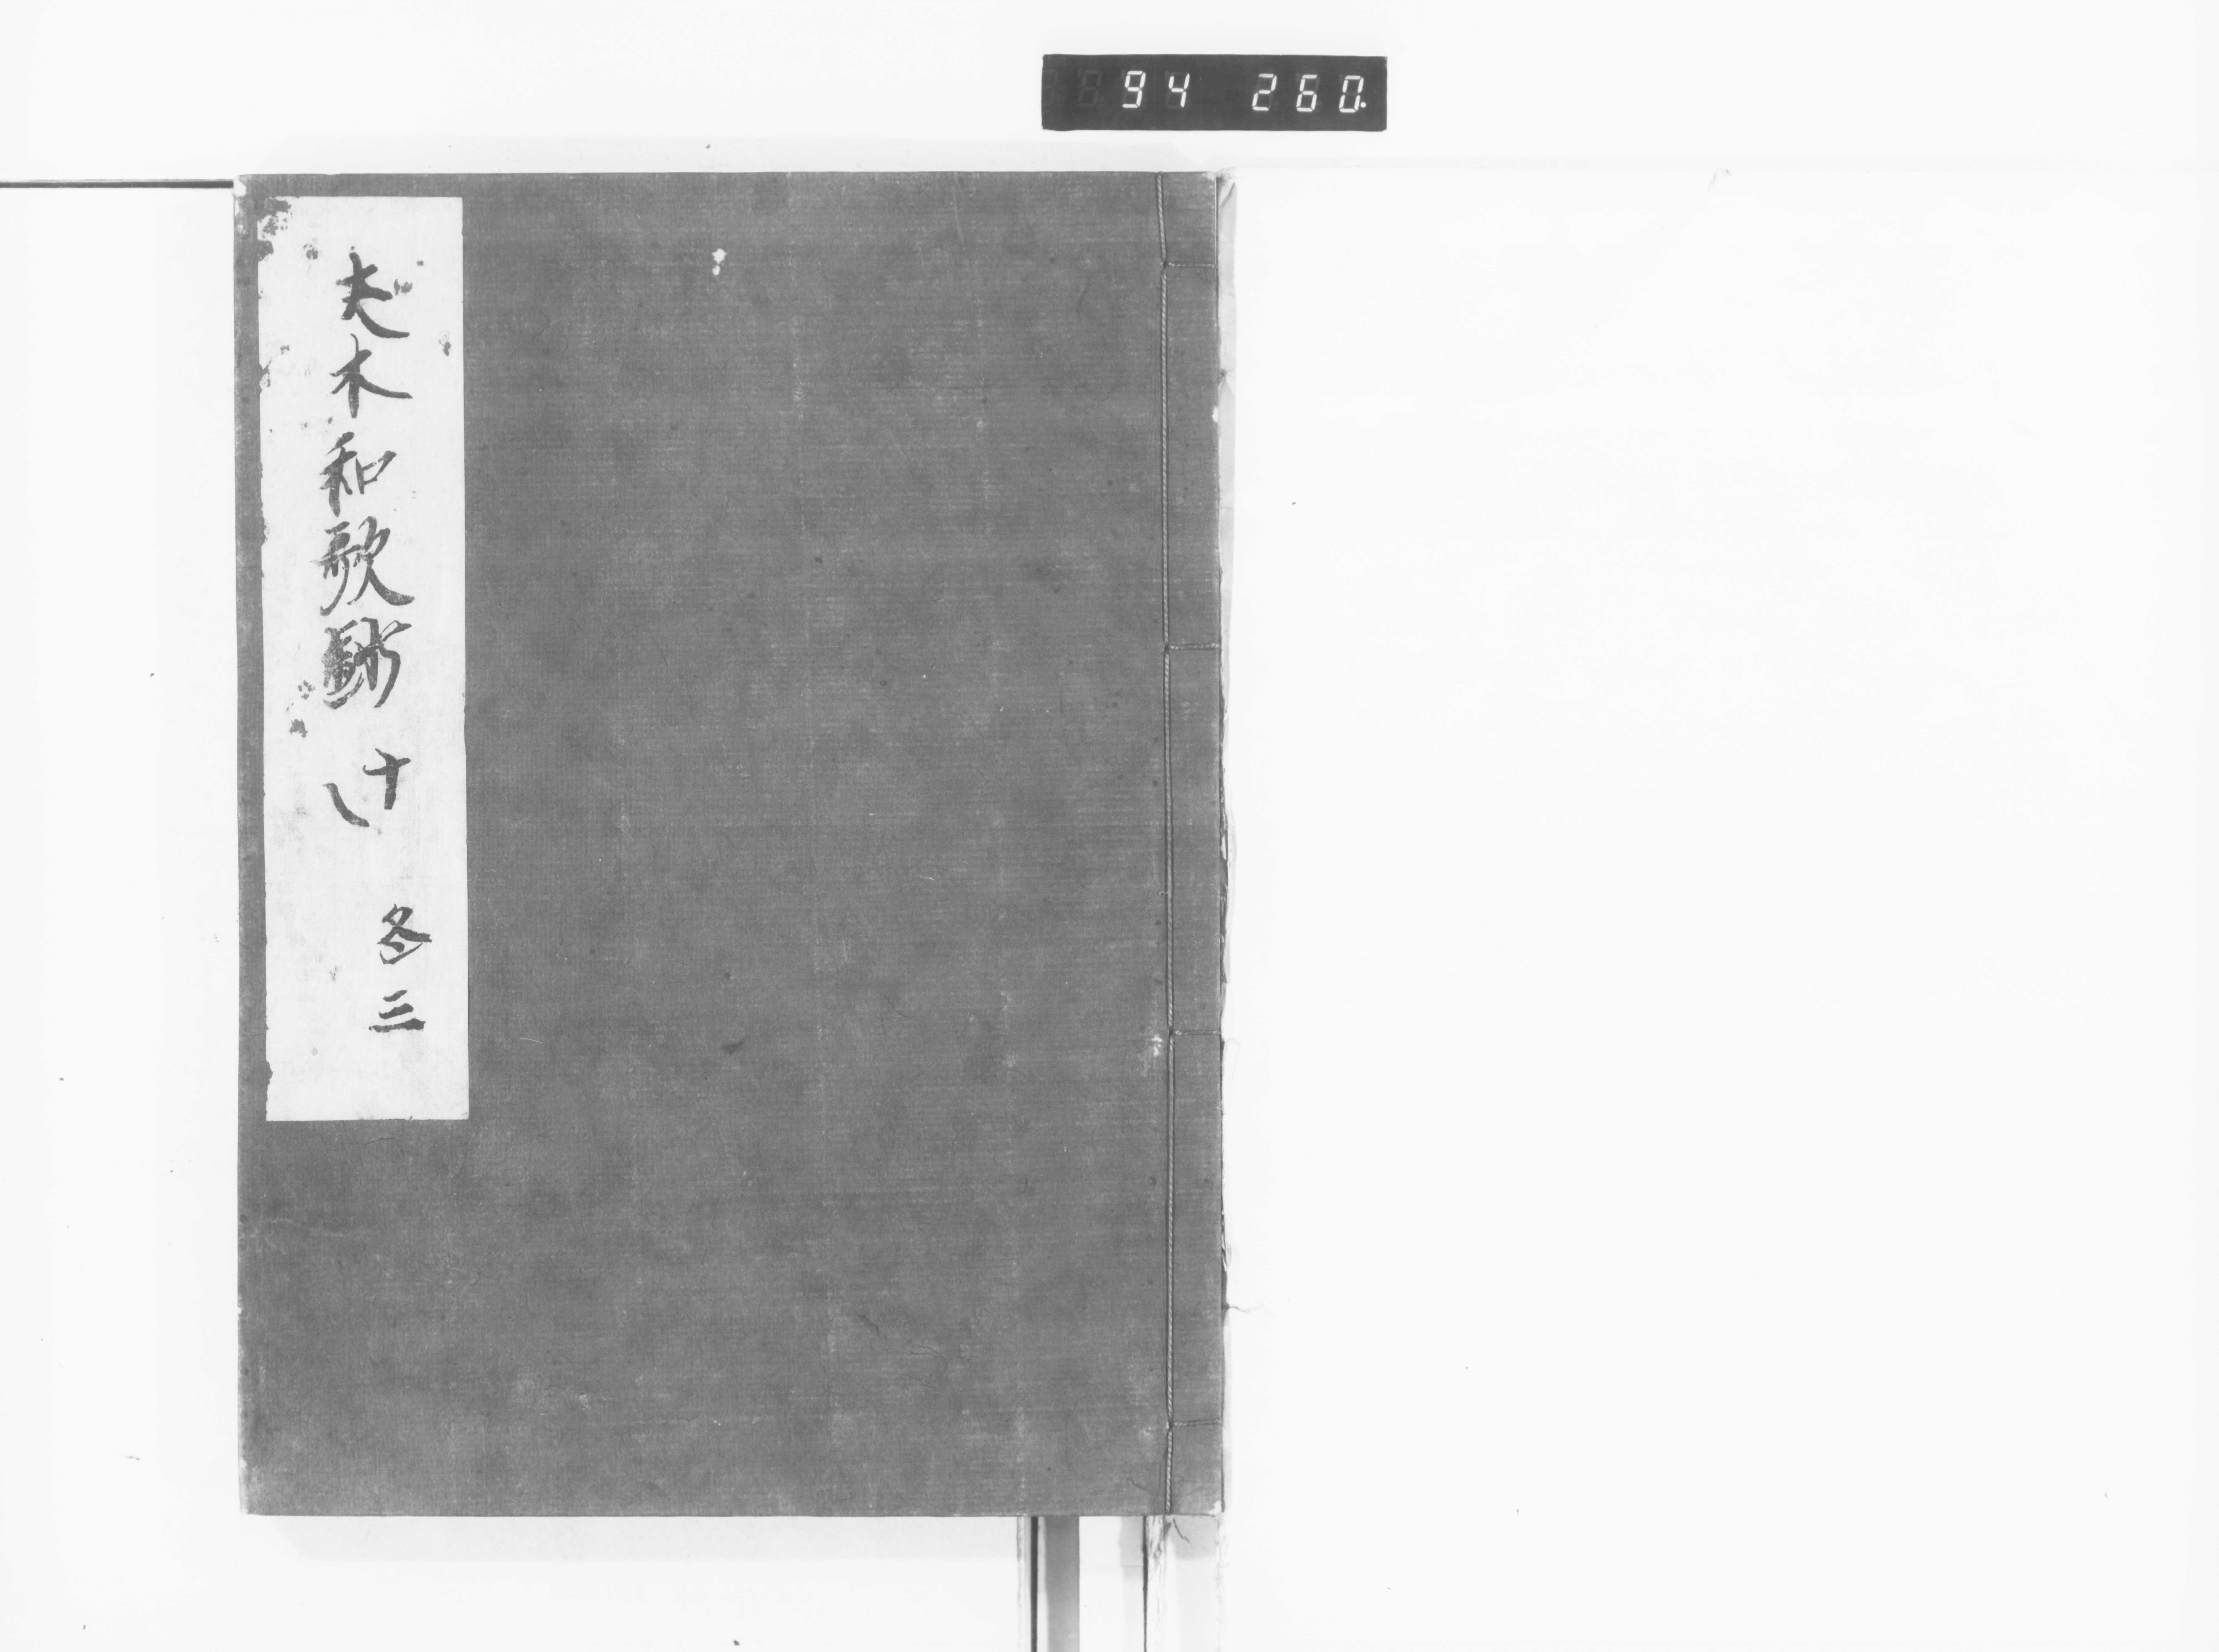 94 260.
夫木和歌鈔 十八 冬三